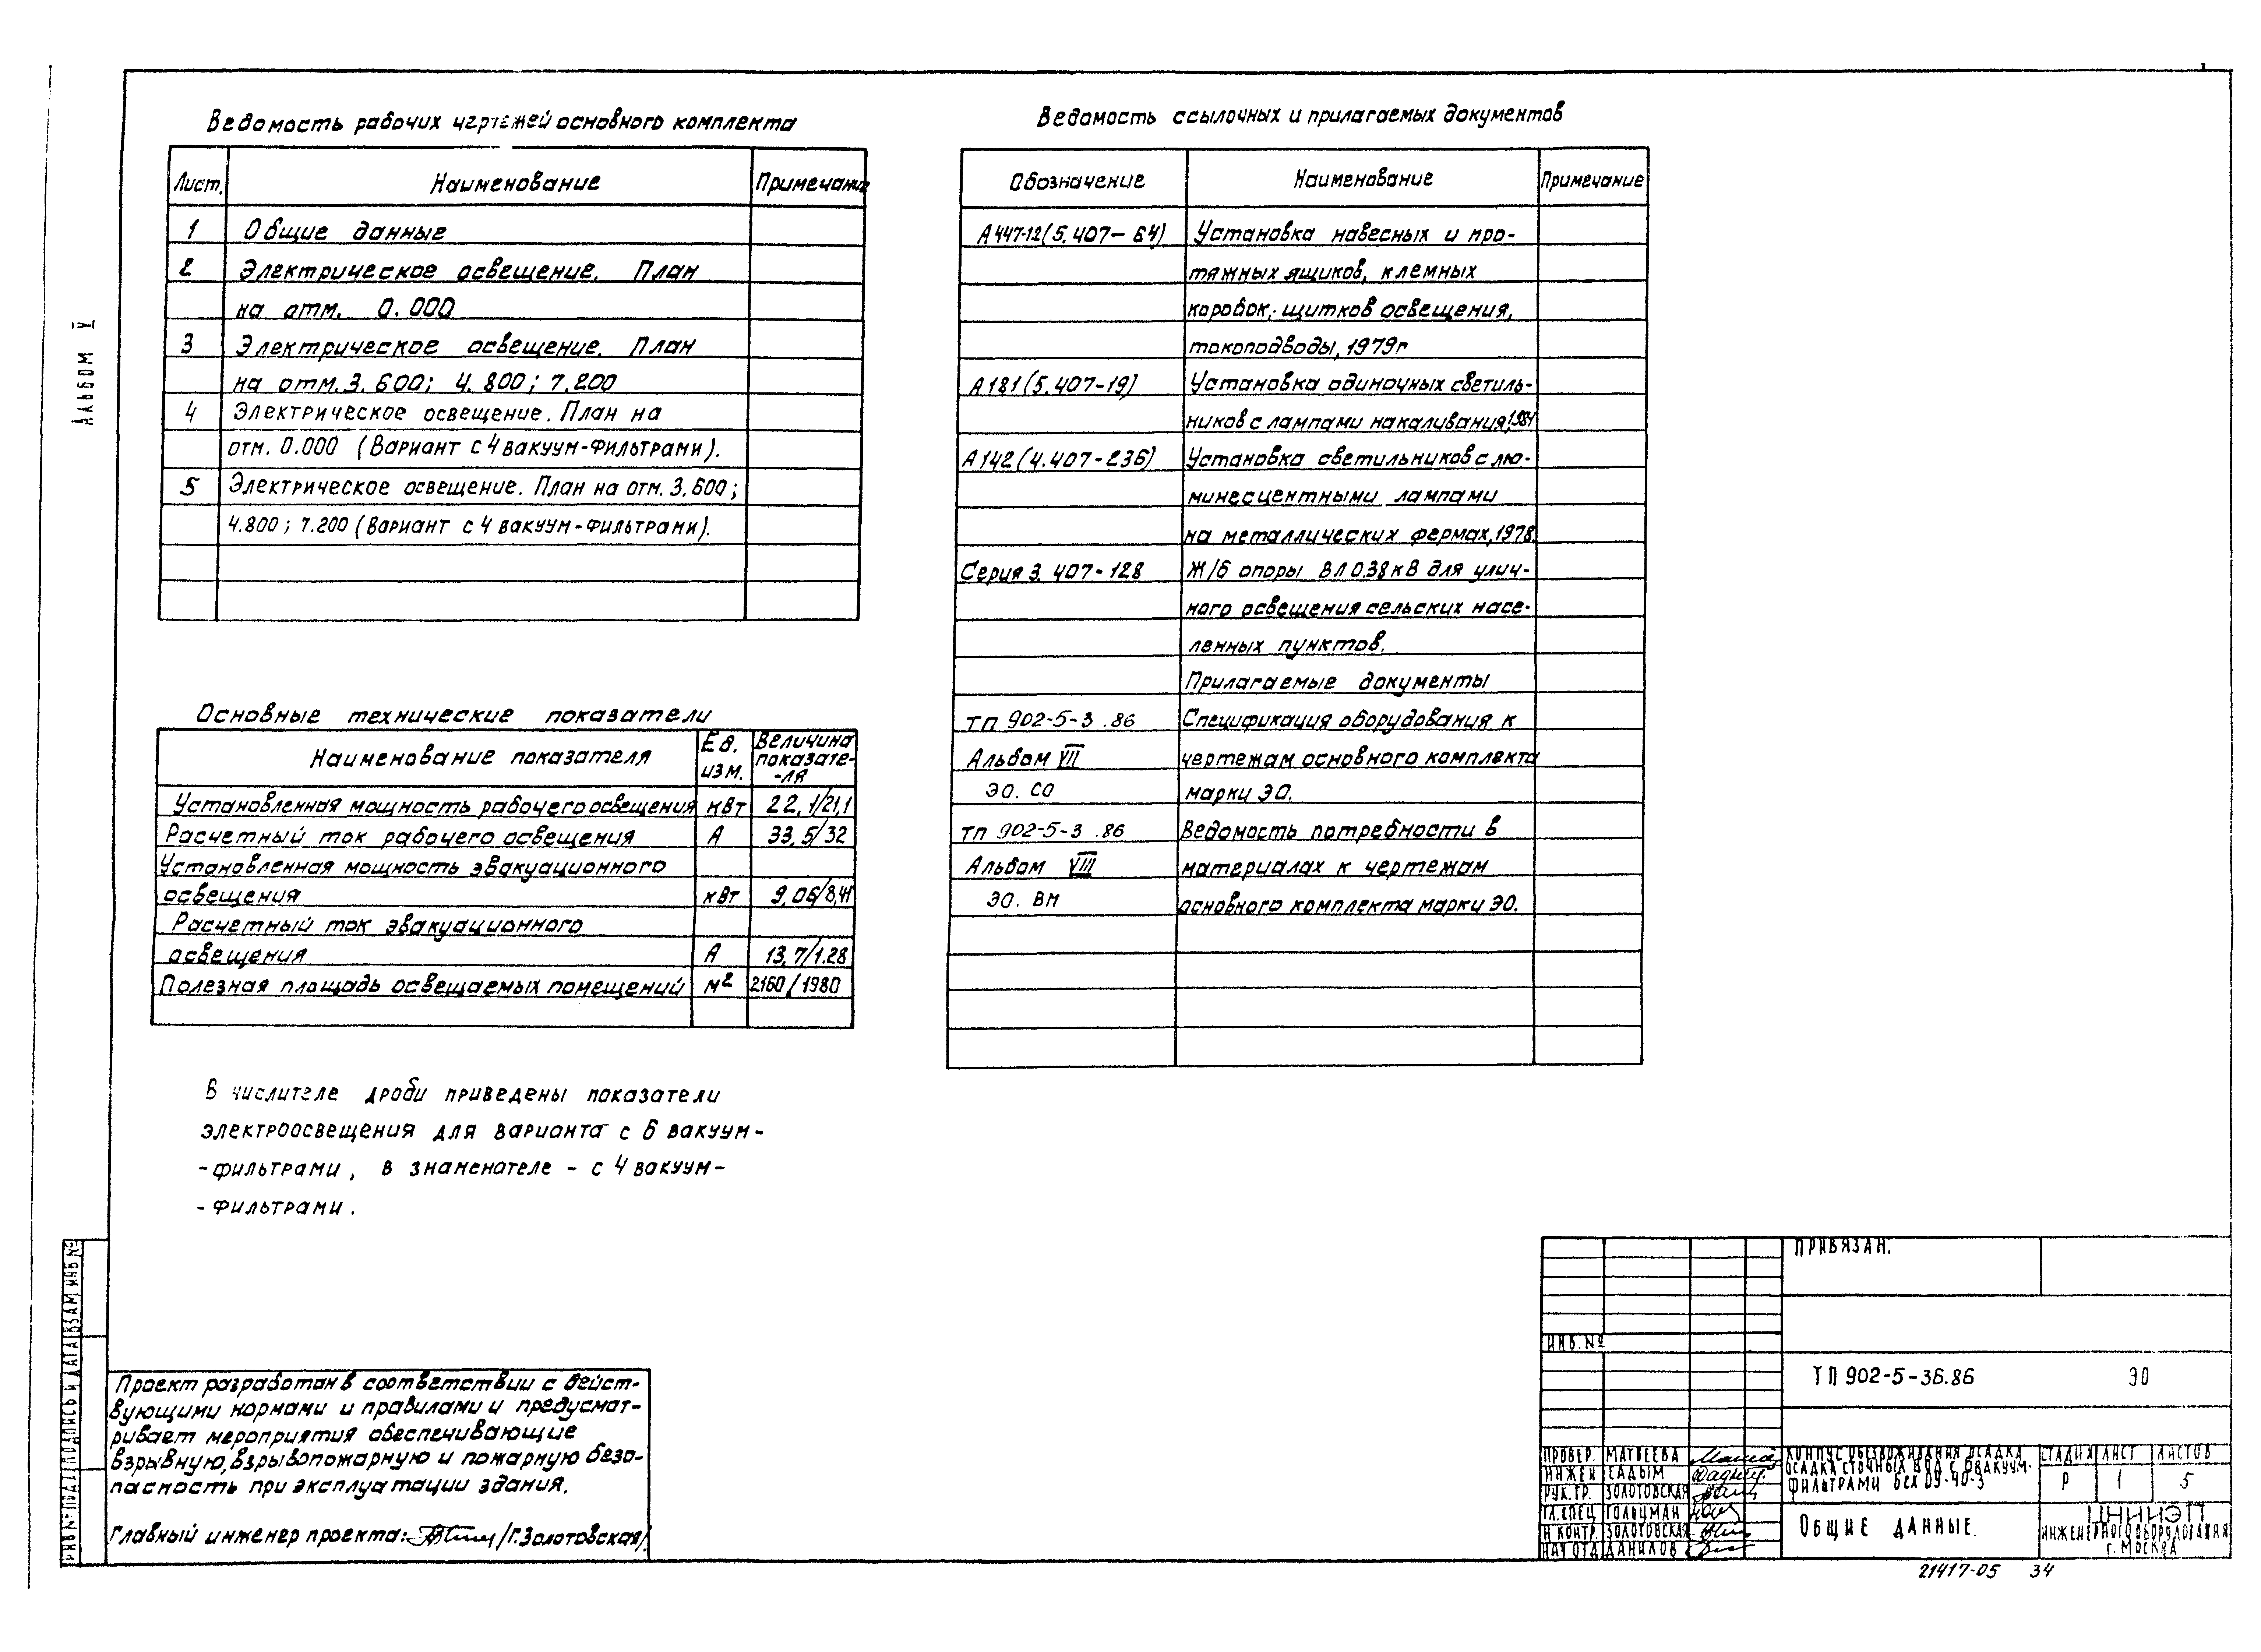 Альбом V
Ведомость рабочих чертежей основного комплекта
Лист. Наименование Примечание
1 Общие данные
2 Электрическое освещение. План
на отм. 0.000
3 Электрическое освещение. План
на отм. 3.600; 4.800; 7.200
4 Электрическое освещение. План на
отм. 0.000 (Вариант с 4 вакуум-фильтрами).
5 Электрическое освещение. План на отм. 3.600;
4.800; 7.200 (Вариант с 4 вакуум-фильтрами).
Основные технические показатели
Наименование показателя Ед. изм. Величина показате--ля
Установленная мощность рабочего освещения кВт 22,1/21,1
Расчетный ток рабочего освещения А 33,5/32
Установленная мощность эвакуационного
освещения кВт 9,06/8,41
Расчетный ток эвакуационного
освещения А 13,7/1.28
Полезная площадь освещаемых помещений м² 2160/1980
В числителе дроби приведены показатели
электроосвещения для варианта с 6 вакуум-
-фильтрами, в знаменателе - с 4 вакуум-
-фильтрами.
Ведомость ссылочных и прилагаемых документов
Обозначение Наименование Примечание
А447-12(5.407-64) Установка навесных и про-
тяжных ящиков, клемных
коробок, щитков освещения,
токоподводы, 1979г
А181(5.407-19) Установка одиночных светиль-
ников с лампами накаливания, 1984
А142(4.407-236) Установка светильников с лю-
минесцентными лампами
на металлических фермах, 1978.
Серия 3.407-128 Ж/б опоры ВЛ 0,38кВ для улич-
ного освещения сельских насе-
ленных пунктов.
Прилагаемые документы
тп 902-5-3 .86 Спецификация оборудования к
Альбом VII чертежам основного комплекта
ЭО. СО марки ЭО.
тп 902-5-3 .86 Ведомость потребности в
Альбом VIII материалах к чертежам
ЭО. ВМ основного комплекта марки ЭО.
Проект разработан в соответствии с дейст-
вующими нормами и правилами и предусмат-
ривает мероприятия обеспечивающие
взрывную, взрывопожарную и пожарную безо-
пасность при эксплуатации здания.
Главный инженер проекта: /Г.Золотовская/
ИНВ № ПОДЛ ПОДПИСЬ И ДАТА ВЗАМ ИНВ №
ПРИВЯЗАН:
ИНВ. №
ТП 902-5-36.86 ЭО
ПРОВЕР. МАТВЕЕВА
ИНЖЕН САДЫМ
РУК.ГР. ЗОЛОТОВСКАЯ
ГЛ.СПЕЦ ГОЛЬЦМАН
Н КОНТР. ЗОЛОТОВСКАЯ
НАЧ ОТД ДАНИЛОВ
КОРПУС ОБЕЗВОЖИВАНИЯ ОСАДКА
ОСАДКА СТОЧНЫХ ВОД С 6 ВАКУУМ-
ФИЛЬТРАМИ БСХ ОУ-40-3
СТАДИЯ ЛИСТ ЛИСТОВ
Р 1 5
ОБЩИЕ ДАННЫЕ.
ЦНИИЭП
ИНЖЕНЕРНОГО ОБОРУДОВАНИЯ
г. МОСКВА
21417-05 34